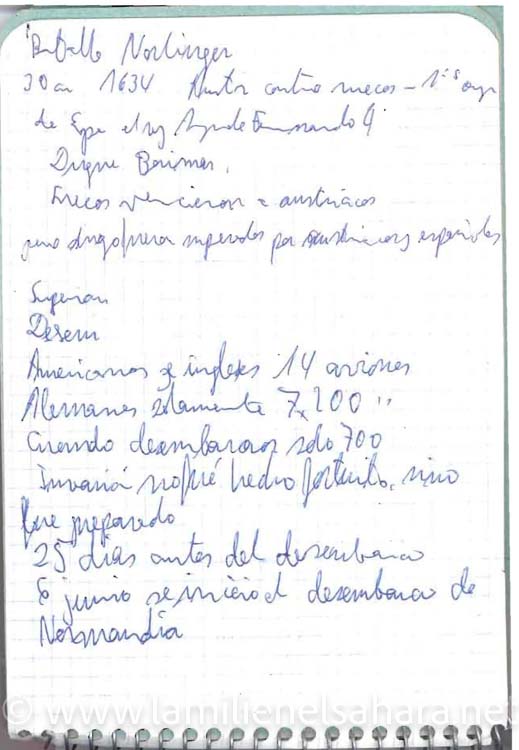 Batalla Norlinger
1634 Austr contra suecos - 1ºs
de Fernando
Duque
Suecos vencieron a austriacos
pero luego fueron superados por austriacos y españoles
Superan
Desem
Americanos e ingleses 14 aviones
Alemanes solamente 7.200 "
Cuando desembarcar solo 700
Invasión no fué hecho fortuito, sino
fue preparado
25 dias antes del desembarco
6 junio se inició el desembarco de
Normandia
© www.lamilienelsahara.net